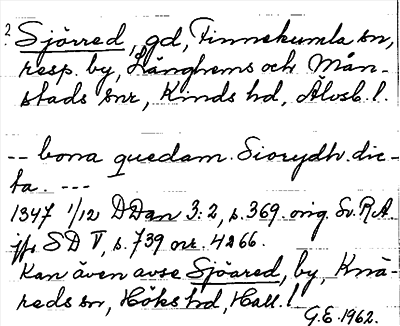 ? Sjörred, gd, Finnekumla sn,
resp. by, Länghems och Mån-
stads snr, Kinds hd, Älvsb. l.
-- bona quedam. Siorydh. dic-
ta. ---
1347 1/12 DDan 3:2, s. 369. orig. Sv. R.A.
jfr SD V, s. 739 nr. 4266.
Kan även avse Sjöared, by, Knä-
reds sn, Höks hd, Hall. l.
G.E. 1962.